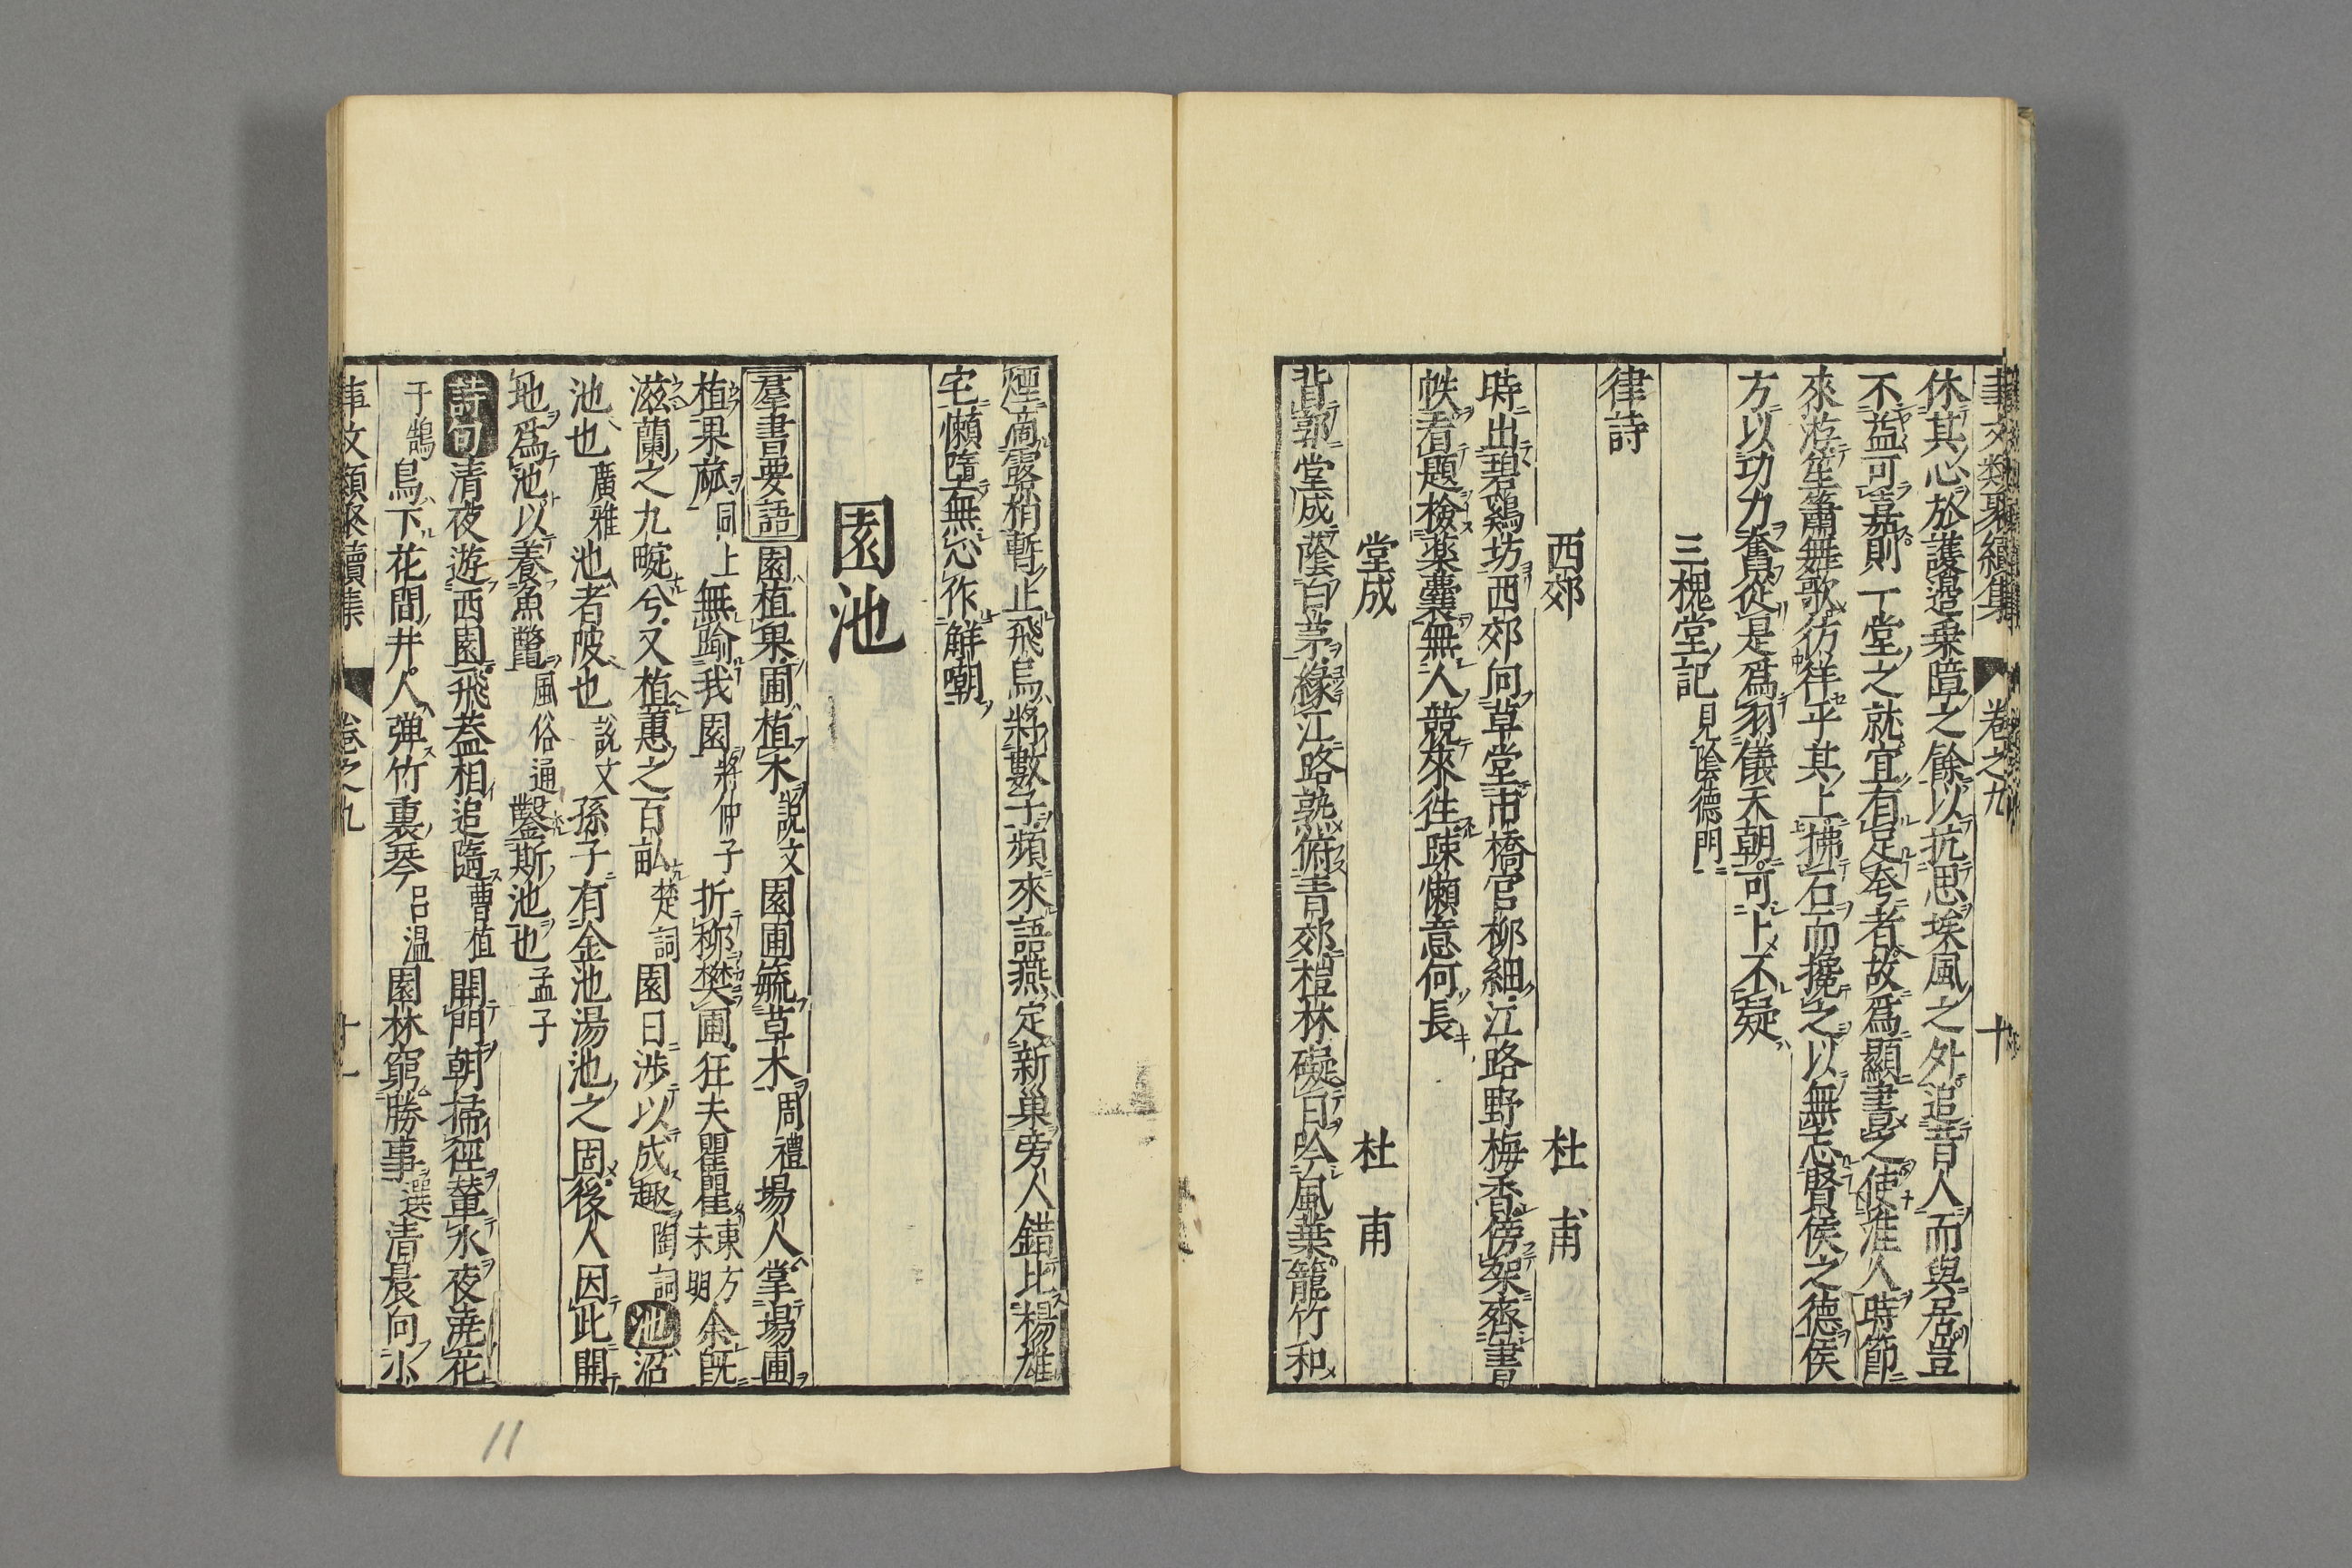 事文類聚續集 卷之九 十
休其心於護邉乗障之餘以抗思埃風之外追昔人而與居豈
不益可嘉則一堂之就宜有足夸者故爲顯書之使淮人時節
來游笙簫舞歌彷徉乎其上拂石而攙之以無忘賢侯之德侯
方以功力奮從是爲羽儀天朝可卜不疑
三槐堂記見陰德門
律詩
西郊 杜甫
時出碧鷄坊西郊向草堂市橋官柳細江路野梅香傍架齊書
帙看題檢薬囊無人競來徃踈懶意何長
堂成 杜甫
背郭堂成蔭白茅緣江路熟俯青郊榿林礙日吟風葉籠竹和
煙滴露梢暫止飛烏將數子頻來語燕定新巢旁人錯比楊雄
宅懶墮無心作解嘲
園池
羣書要語 園植果圃植木說文園圃毓草木周禮場人掌場圃
植果蓏同上無踰我園將仲子折栁樊圃狂夫瞿瞿東方未明余既
滋蘭之九畹兮又植蕙之百畝楚詞園日渉以成趣陶詞 池 沼
池也廣雅池者陂也說文孫子有金池湯池之固後人因此開
地爲池以養魚鼈風俗通鑿斯池也孟子
詩句 清夜遊西園飛葢相追隨曹植開門朝掃徑輦水夜澆花
于鵠鳥下花間井人弾竹裏琴呂温園林窮勝事選清晨向小
事文類聚續集 卷之九 十一
11